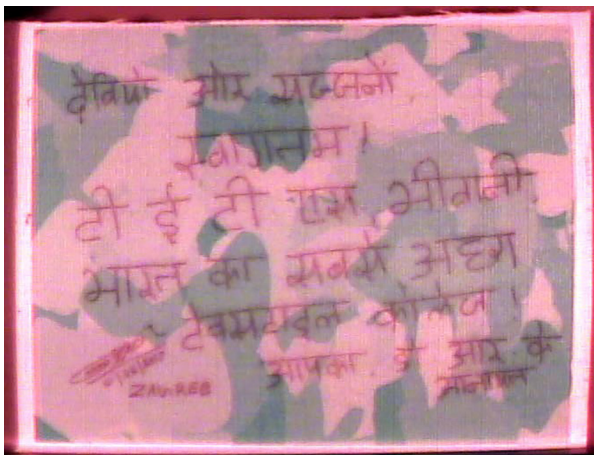 देवियो और सज्जनों
स्वागतम !
टी ई टी एस भीवानी
भारत का सबसे अच्छा
टेक्सटाइल कॉलेज !
आपका डॉ आर के
ZAGREB